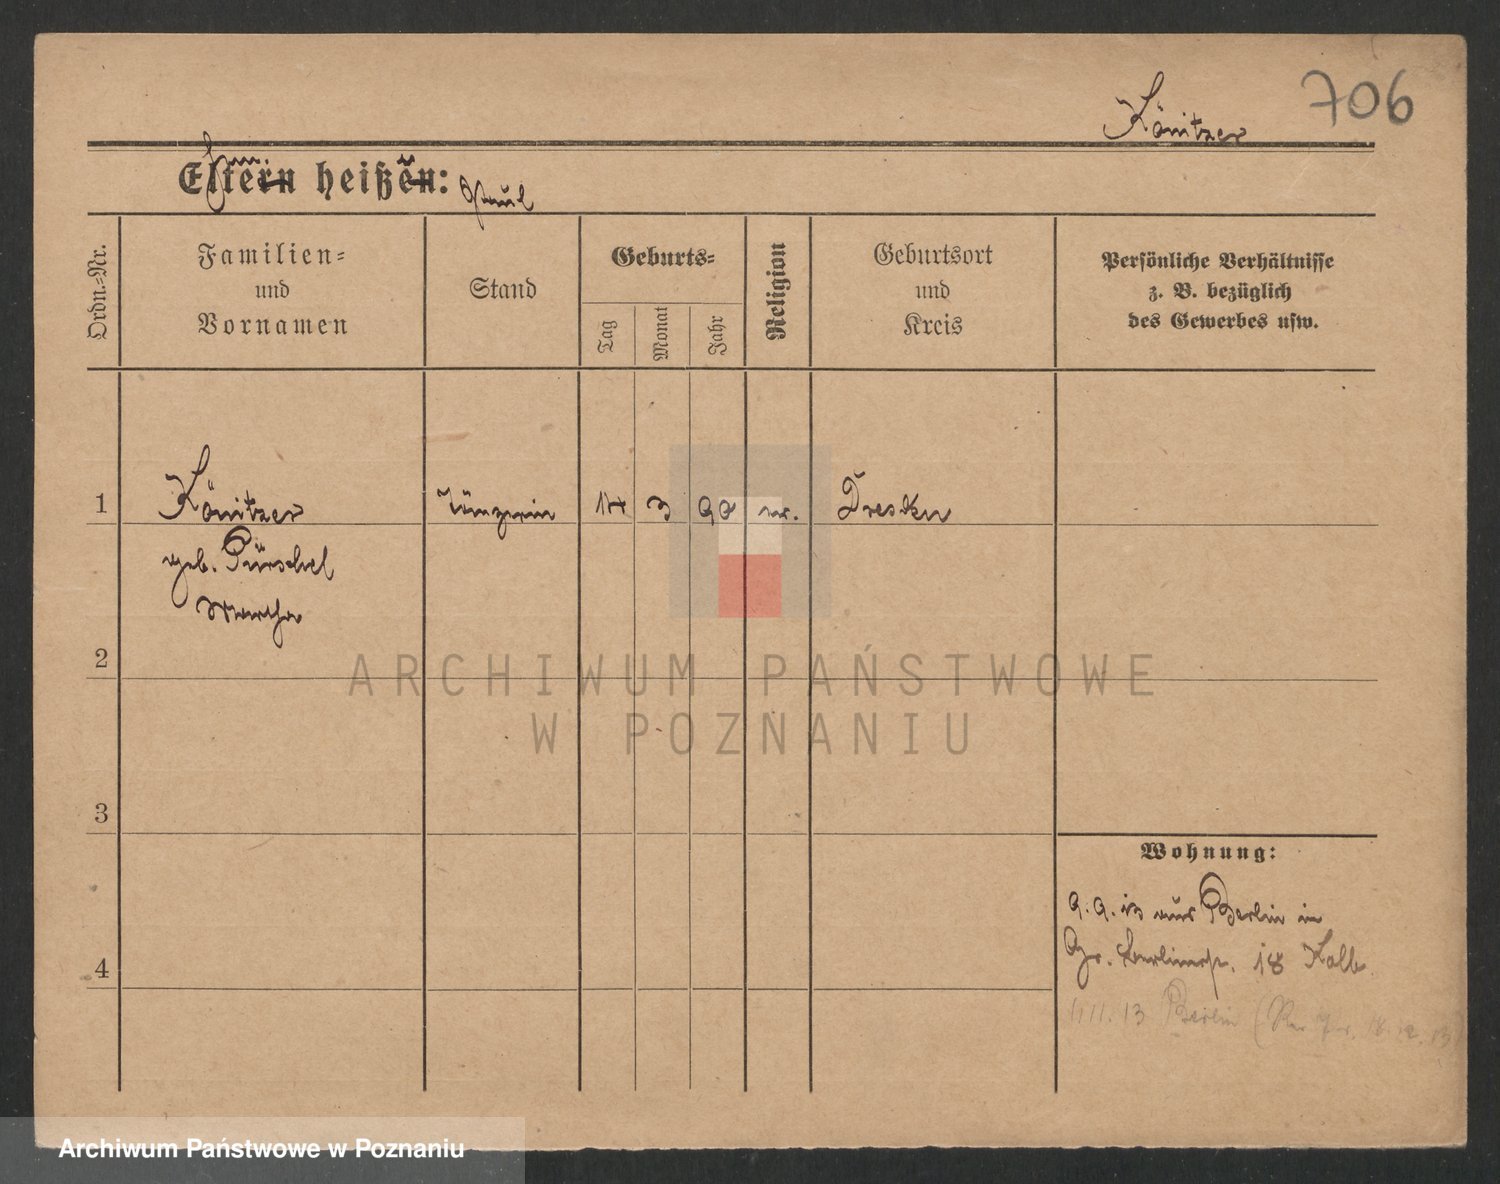 706
Könitzer
Eltern heißen: Paul
Ordn.-Nr.
Familien-
und
Vornamen
Stand
Geburts-
Tag
Monat
Jahr
Religion
Geburtsort
und
Kreis
Persönliche Verhältnisse
z. B. bezüglich
des Gewerbes usw.
1
Könitzer
Tänzerin
14
3
90
ev.
Dresden
geb. Pürschel
Martha
2
3
4
Wohnung:
9. 9. 13 aus Berlin in
Gr. Berlinerstr. 18 Kolb
1/11. 13 Berlin
ARCHIWUM PAŃSTWOWE
W POZNANIU
Archiwum Państwowe w Poznaniu